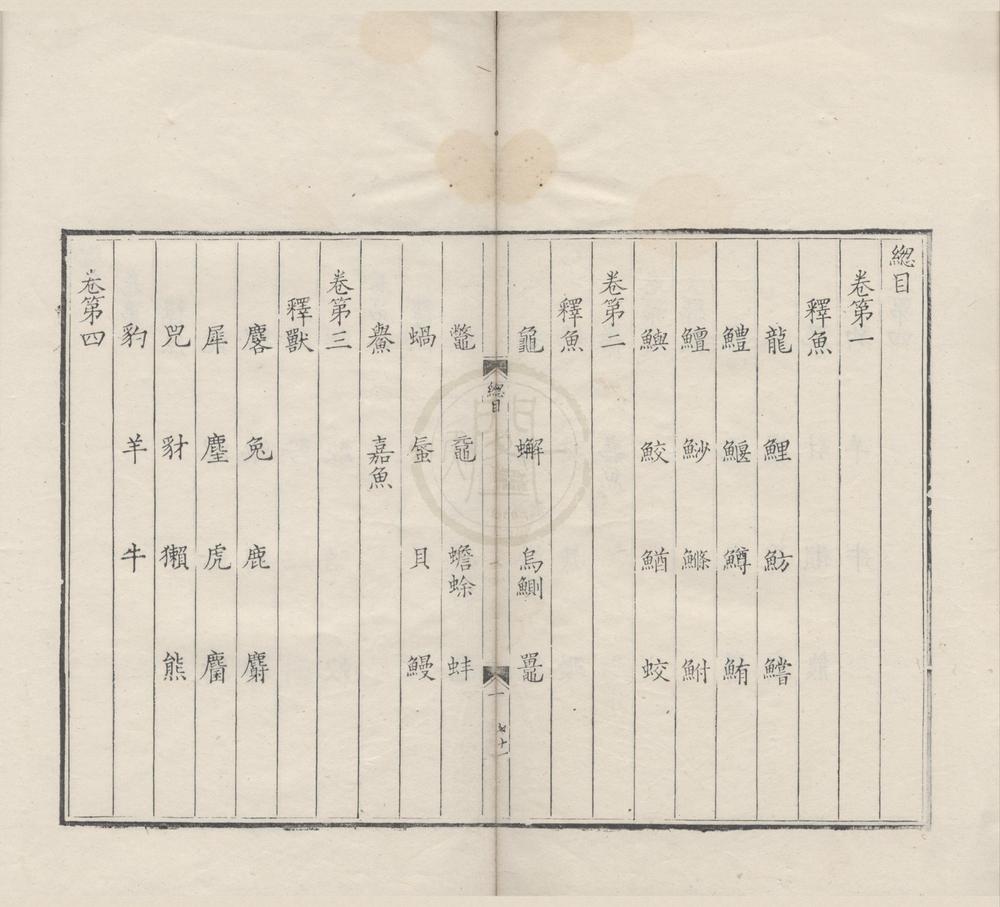 總目
卷第一
釋魚
龍 鯉 魴 鱨
鱧 鰋 鱒 鮪
鱣 魦 鰷 鮒
鱮 鮫 鰌 蛟
卷第二
釋魚
龜 蠏 烏鰂 鼉
總目 一
鼈 黿 蟾蜍 蚌
蝸 蜃 貝 鰻
鱟 嘉魚
卷第三
釋獸
麐 兔 鹿 麝
犀 麈 虎 麕
兕 豺 獺 熊
豹 羊 牛
卷第四